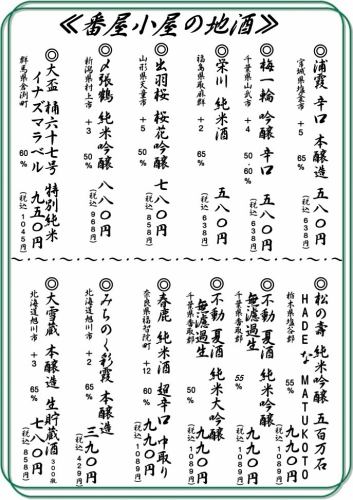 ≪番屋小屋の地酒≫
◎浦霞 辛口 本醸造 五八〇円
宮城県塩釜市 +5 65% (税込 638円)
◎梅一輪 吟醸 辛口 五八〇円
千葉県山武市 +4 50・60% (税込 638円)
◎栄川 純米酒 五八〇円
福島県耶麻郡 +2 65% (税込 638円)
◎出羽桜 桜花吟醸 七八〇円
山形県天童市 +5 50% (税込 858円)
◎〆張鶴 純米吟醸 八八〇円
新潟県村上市 +3 50% (税込 968円)
◎大盃 桶六十七号 特別純米
イナズマラベル 九五〇円
群馬県倉渕町 60% (税込 1045円)
◎松の壽 純米吟醸 五百万石
HADEなMATUKOTO
九九〇円
栃木県塩谷郡 55% (税込 1089円)
◎不動 夏酒 純米吟醸
無濾過生 九九〇円
千葉県香取郡 55% (税込 1089円)
◎不動 夏酒 純米大吟醸
無濾過生 九九〇円
千葉県香取郡 50% (税込 1089円)
◎春鹿 純米酒 超辛口 中取り
九九〇円
奈良県福智院町 +12 60% (税込 1089円)
◎みちのく彩霞 本醸造
三九〇円
北海道旭川市 +2 (税込 429円)
◎大雪蔵 本醸造 生貯蔵酒 300瓶
七八〇円
北海道旭川市 +3 65% (税込 858円)